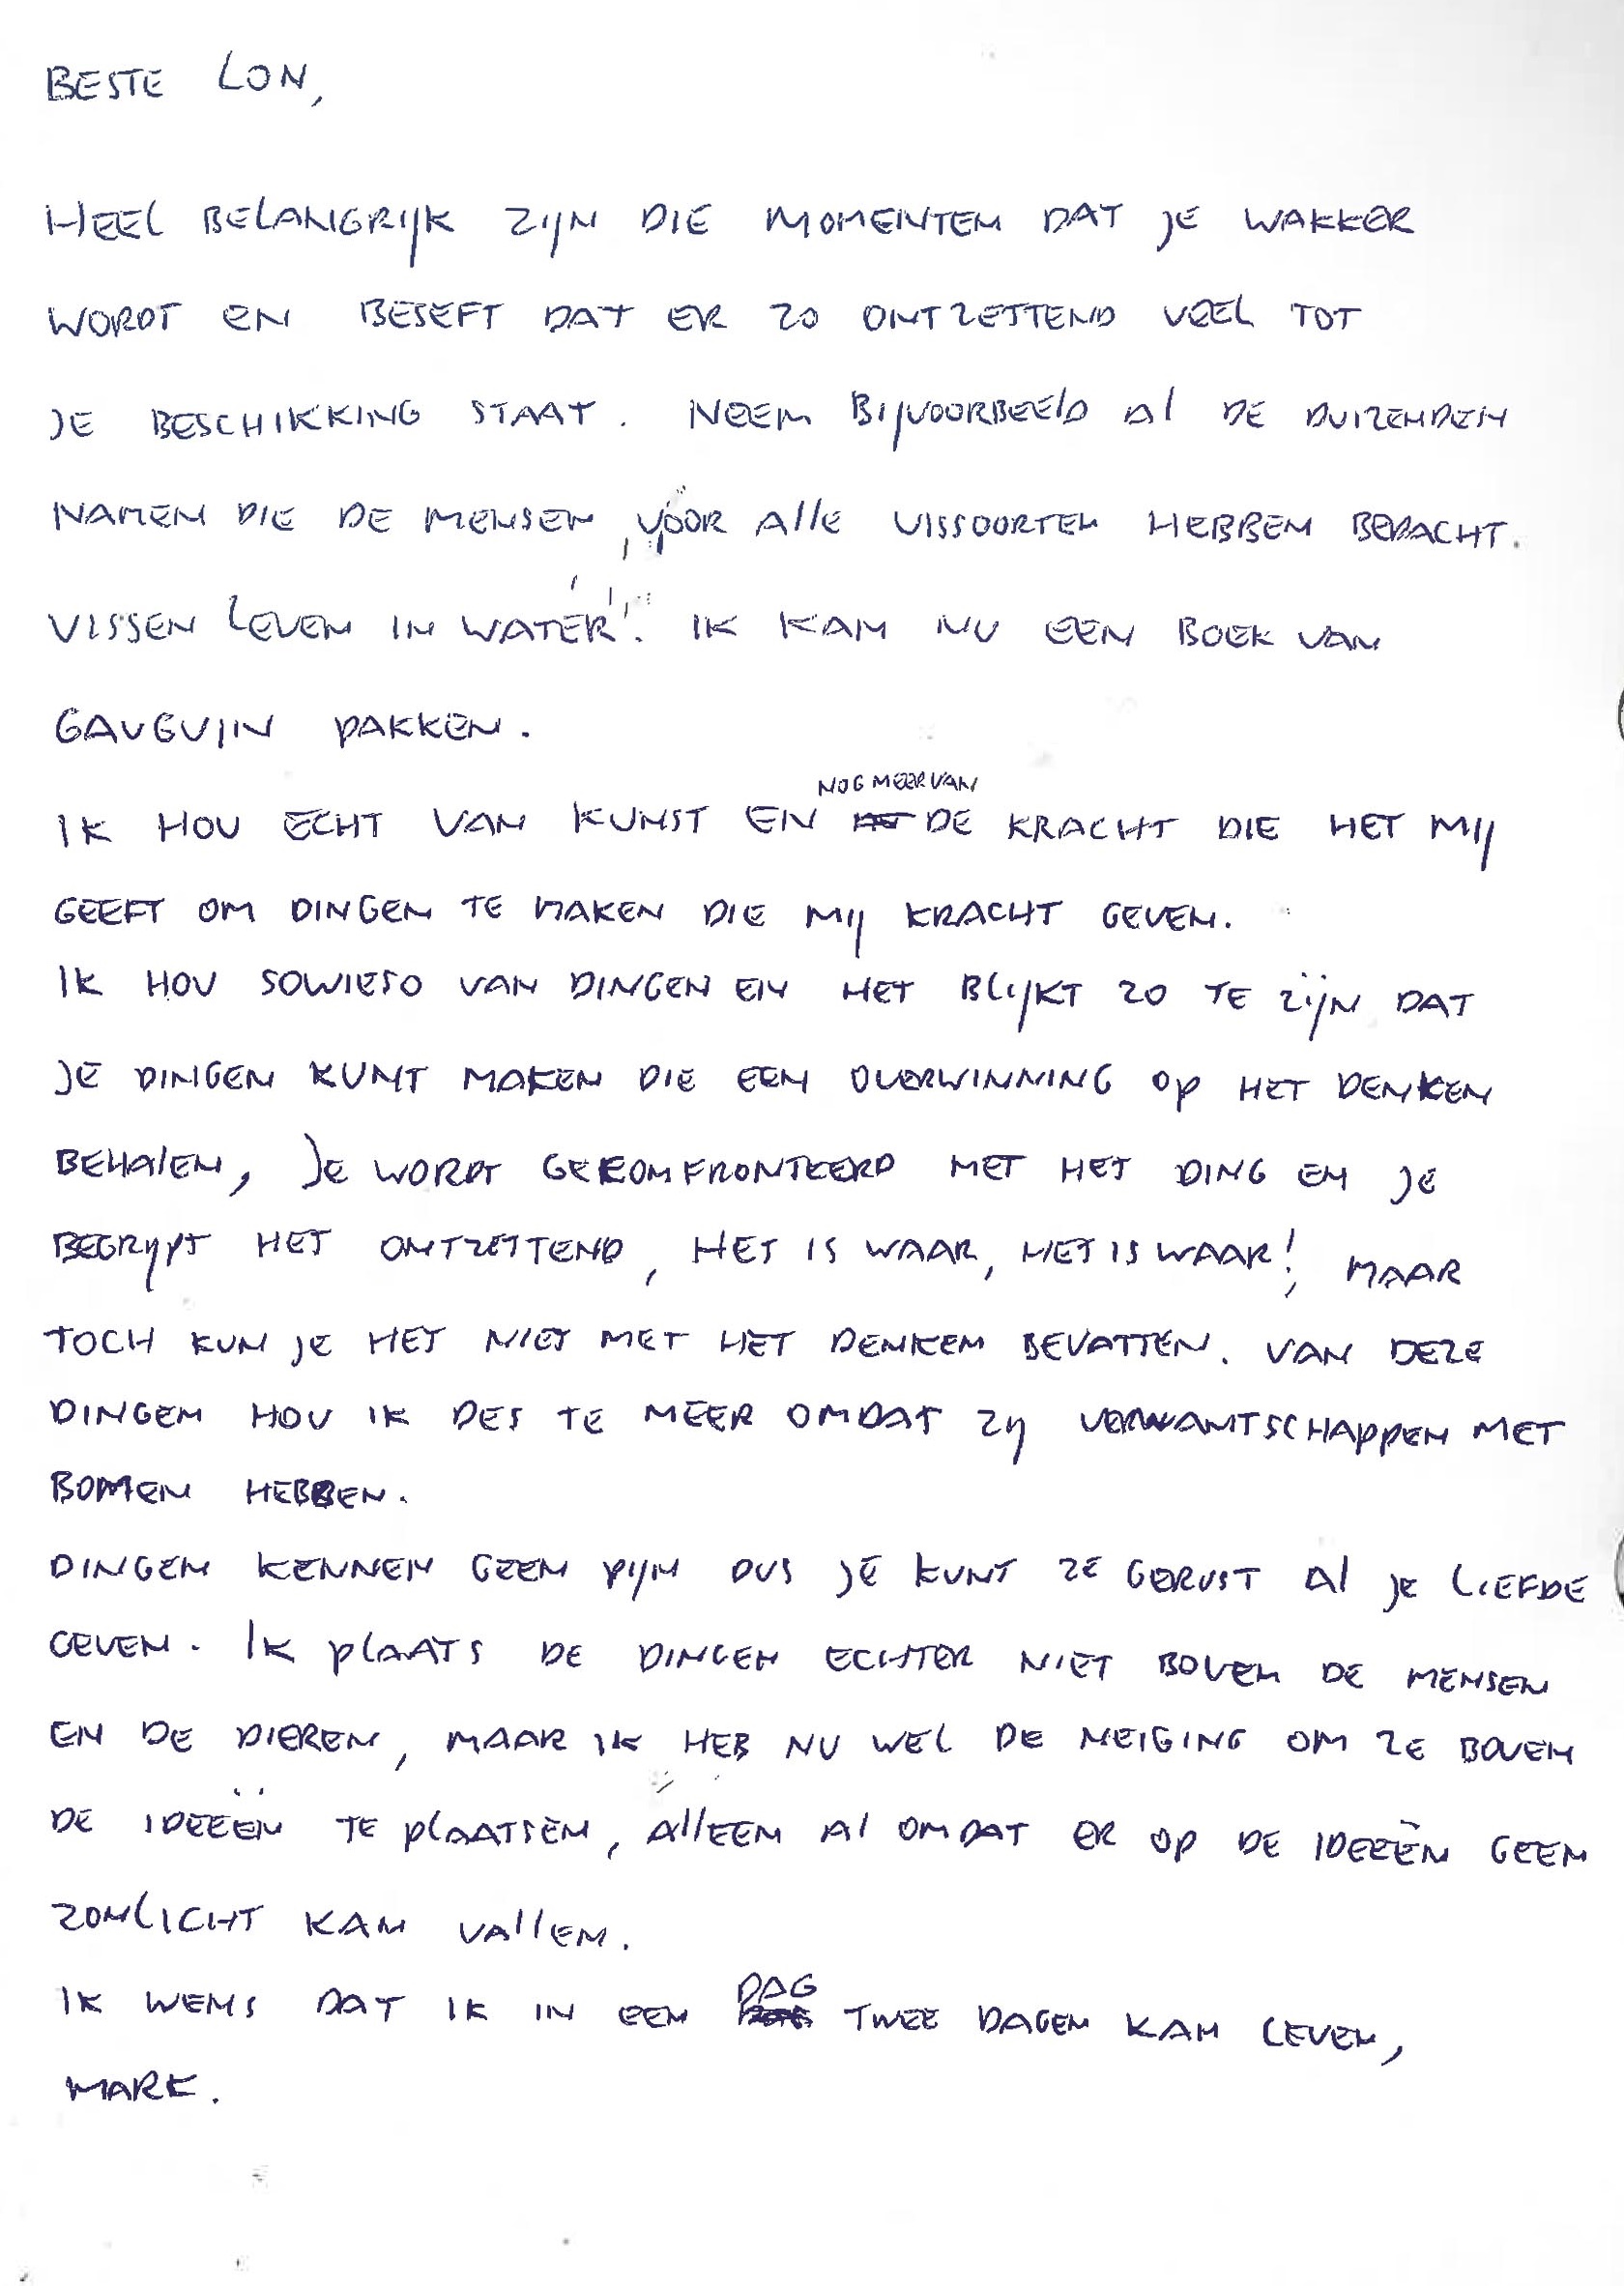 BESTE LON,
HEEL BELANGRIJK ZIJN DIE MOMENTEN DAT JE WAKKER
WORDT EN BESEFT DAT ER ZO ONTZETTEND VEEL TOT
JE BESCHIKKING STAAT. NEEM BIJVOORBEELD AL DE DUIZENDEN
NAMEN DIE DE MENSEN VOOR ALLE VISSOORTEN HEBBEN BEDACHT.
VISSEN LEVEN IN WATER. IK KAN NU EEN BOEK VAN
GAUGUIJN PAKKEN.
NOG MEER VAN
IK HOU ECHT VAN KUNST EN DE KRACHT DIE HET MIJ
GEEFT OM DINGEN TE MAKEN DIE MIJ KRACHT GEVEN.
IK HOU SOWIESO VAN DINGEN EN HET BLIJKT ZO TE ZIJN DAT
JE DINGEN KUNT MAKEN DIE EEN OVERWINNING OP HET DENKEN
BEHALEN, JE WORDT GEKONFRONTEERD MET HET DING EN JE
BEGRIJPT HET ONTZETTEND, HET IS WAAR, HET IS WAAR!, MAAR
TOCH KUN JE HET NIET MET HET DENKEN BEVATTEN. VAN DEZE
DINGEN HOU IK DES TE MEER OMDAT ZIJ VERWANTSCHAPPEN MET
BOMEN HEBBEN.
DINGEN KENNEN GEEN PIJN DUS JE KUNT ZE GERUST AL JE LIEFDE
GEVEN. IK PLAATS DE DINGEN ECHTER NIET BOVEN DE MENSEN
EN DE DIEREN, MAAR IK HEB NU WEL DE NEIGING OM ZE BOVEN
DE IDEEËN TE PLAATSEN, ALLEEN AL OMDAT ER OP DE IDEEËN GEEN
ZONLICHT KAN VALLEN.
IK WENS DAT IK IN EEN DAG TWEE DAGEN KAN LEVEN,
MARK.